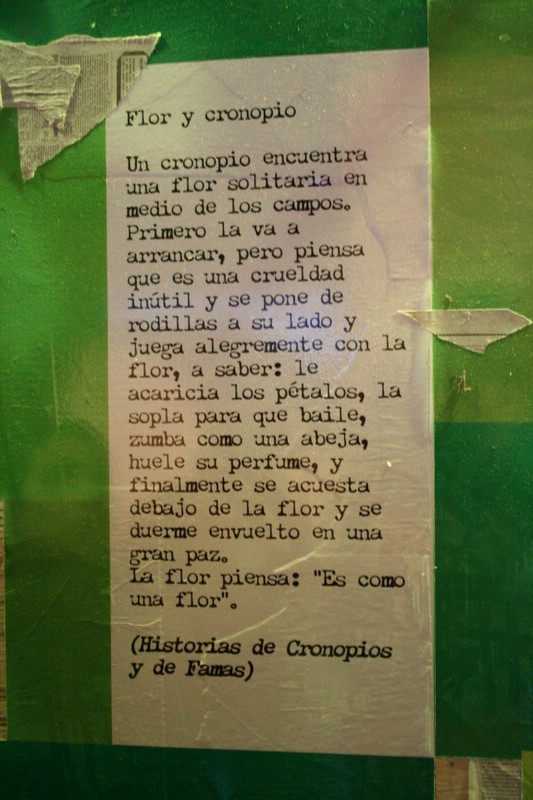 Flor y cronopio
Un cronopio encuentra
una flor solitaria en
medio de los campos.
Primero la va a
arrancar, pero piensa
que es una crueldad
inútil y se pone de
rodillas a su lado y
juega alegremente con la
flor, a saber: le
acaricia los pétalos, la
sopla para que baile,
zumba como una abeja,
huele su perfume, y
finalmente se acuesta
debajo de la flor y se
duerme envuelto en una
gran paz.
La flor piensa: "Es como
una flor".
(Historias de Cronopios
y de Famas)